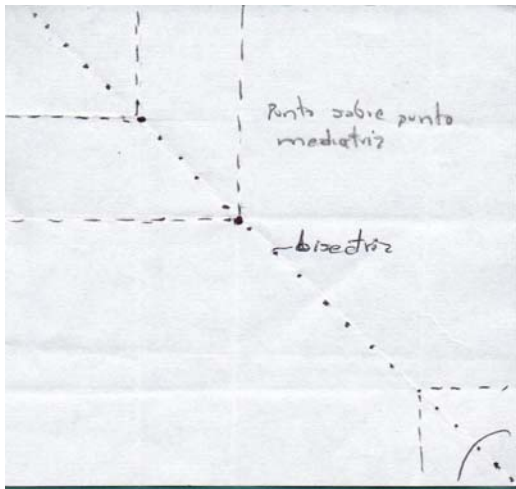 Punto sobre punto
mediatriz
bisectriz